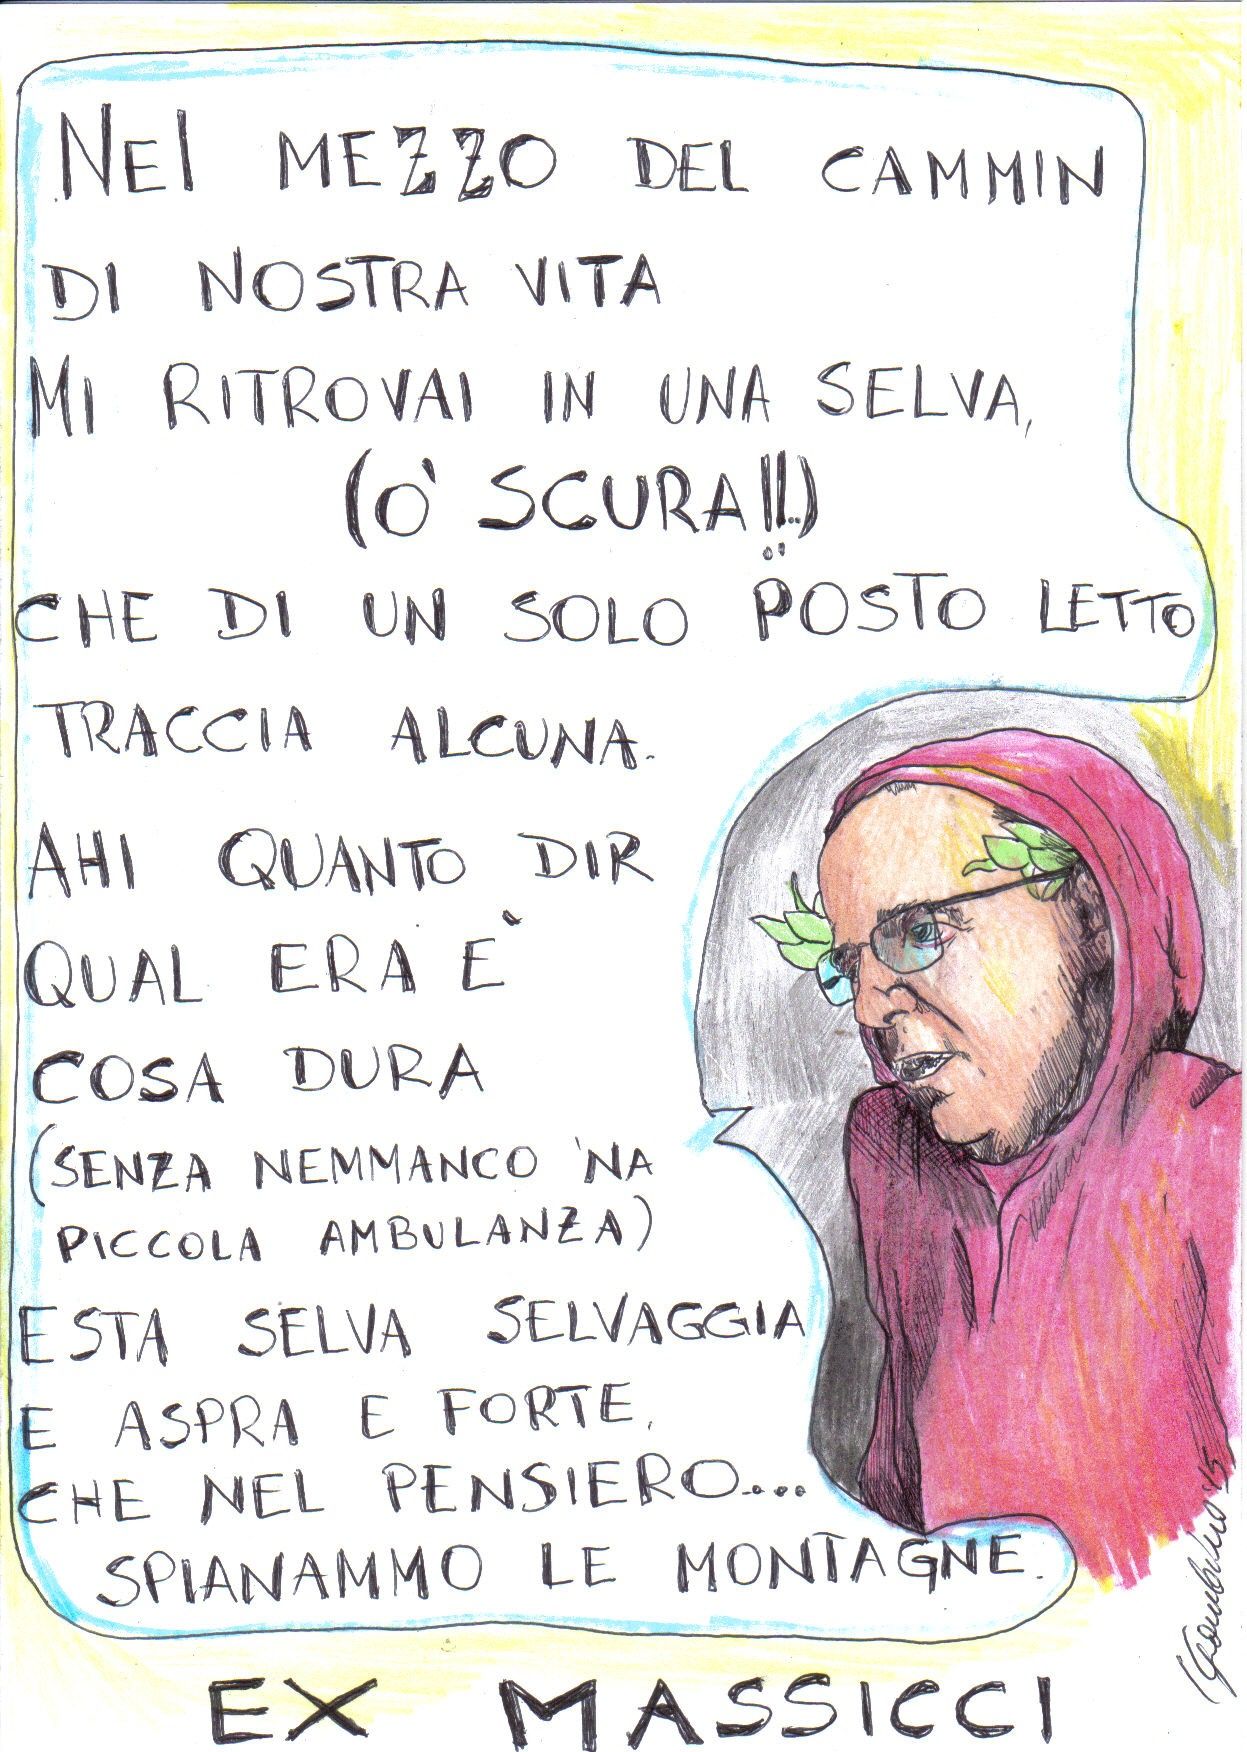 NEl MEZZO DEL CAMMIN
DI NOSTRA VITA
MI RITROVAI IN UNA SELVA,
(O' SCURA!!..)
CHE DI UN SOLO POSTO LETTO
TRACCIA ALCUNA.
AHI QUANTO DIR
QUAL ERA È
COSA DURA
(SENZA NEMMANCO 'NA
PICCOLA AMBULANZA)
ESTA SELVA SELVAGGIA
E ASPRA E FORTE,
CHE NEL PENSIERO....
SPIANAMMO LE MONTAGNE.
EX MASSICCI